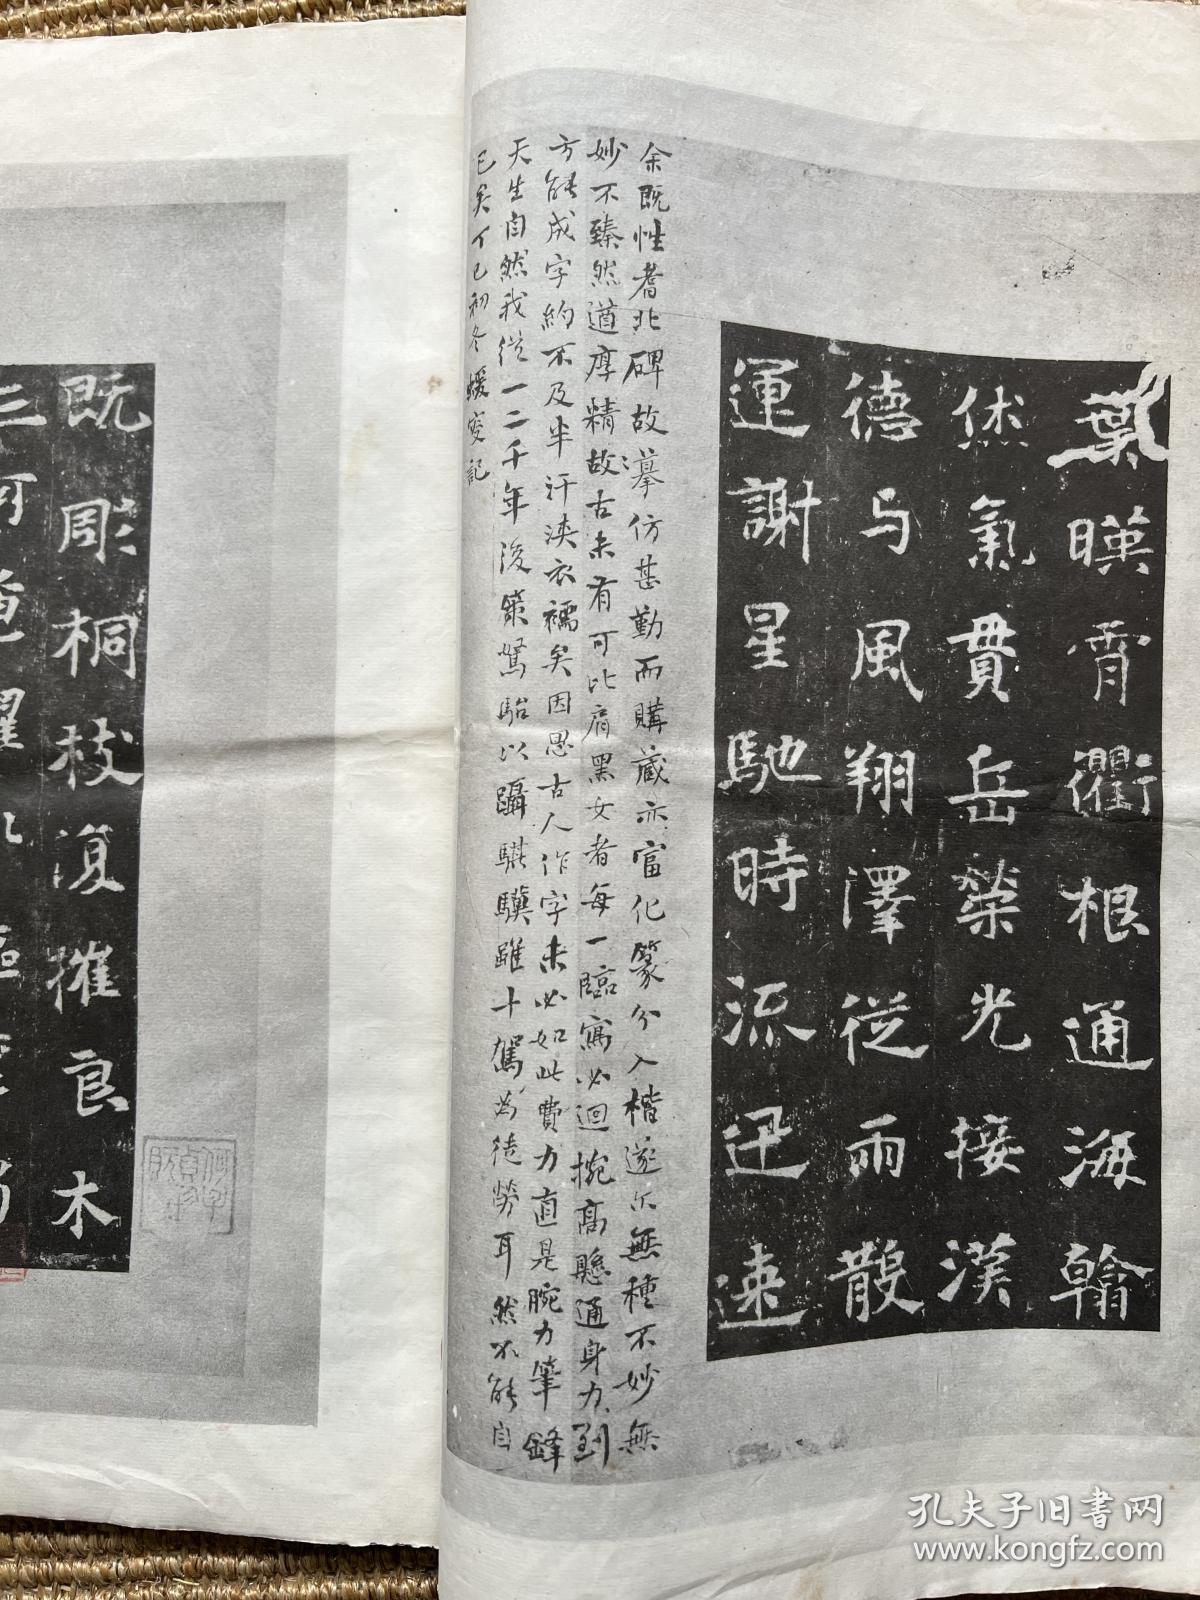 葉暎霄衢根通海翰
然氣貫岳榮光接漢
德与風翔澤從雨散
運謝星馳時流迅速
余既性耆北碑故摹仿甚勤而購藏亦富化篆分入楷遂尔無種不妙無
妙不臻然遒厚精古未有可比肩黑女者每一臨寫必迴捥高懸通身力到
方能成字約不及半汗浹衣襦矣因思古人作字未必如此費力直是腕力筆鋒
天生自然我從一二千年後策駑駘以躡騏驥雖十駕爲徒勞耳然不能自
已矣丁巳初冬蝯叟記
既彫桐枝復摧良木
三河奄曜
孔夫子旧书网
www.kongfz.com